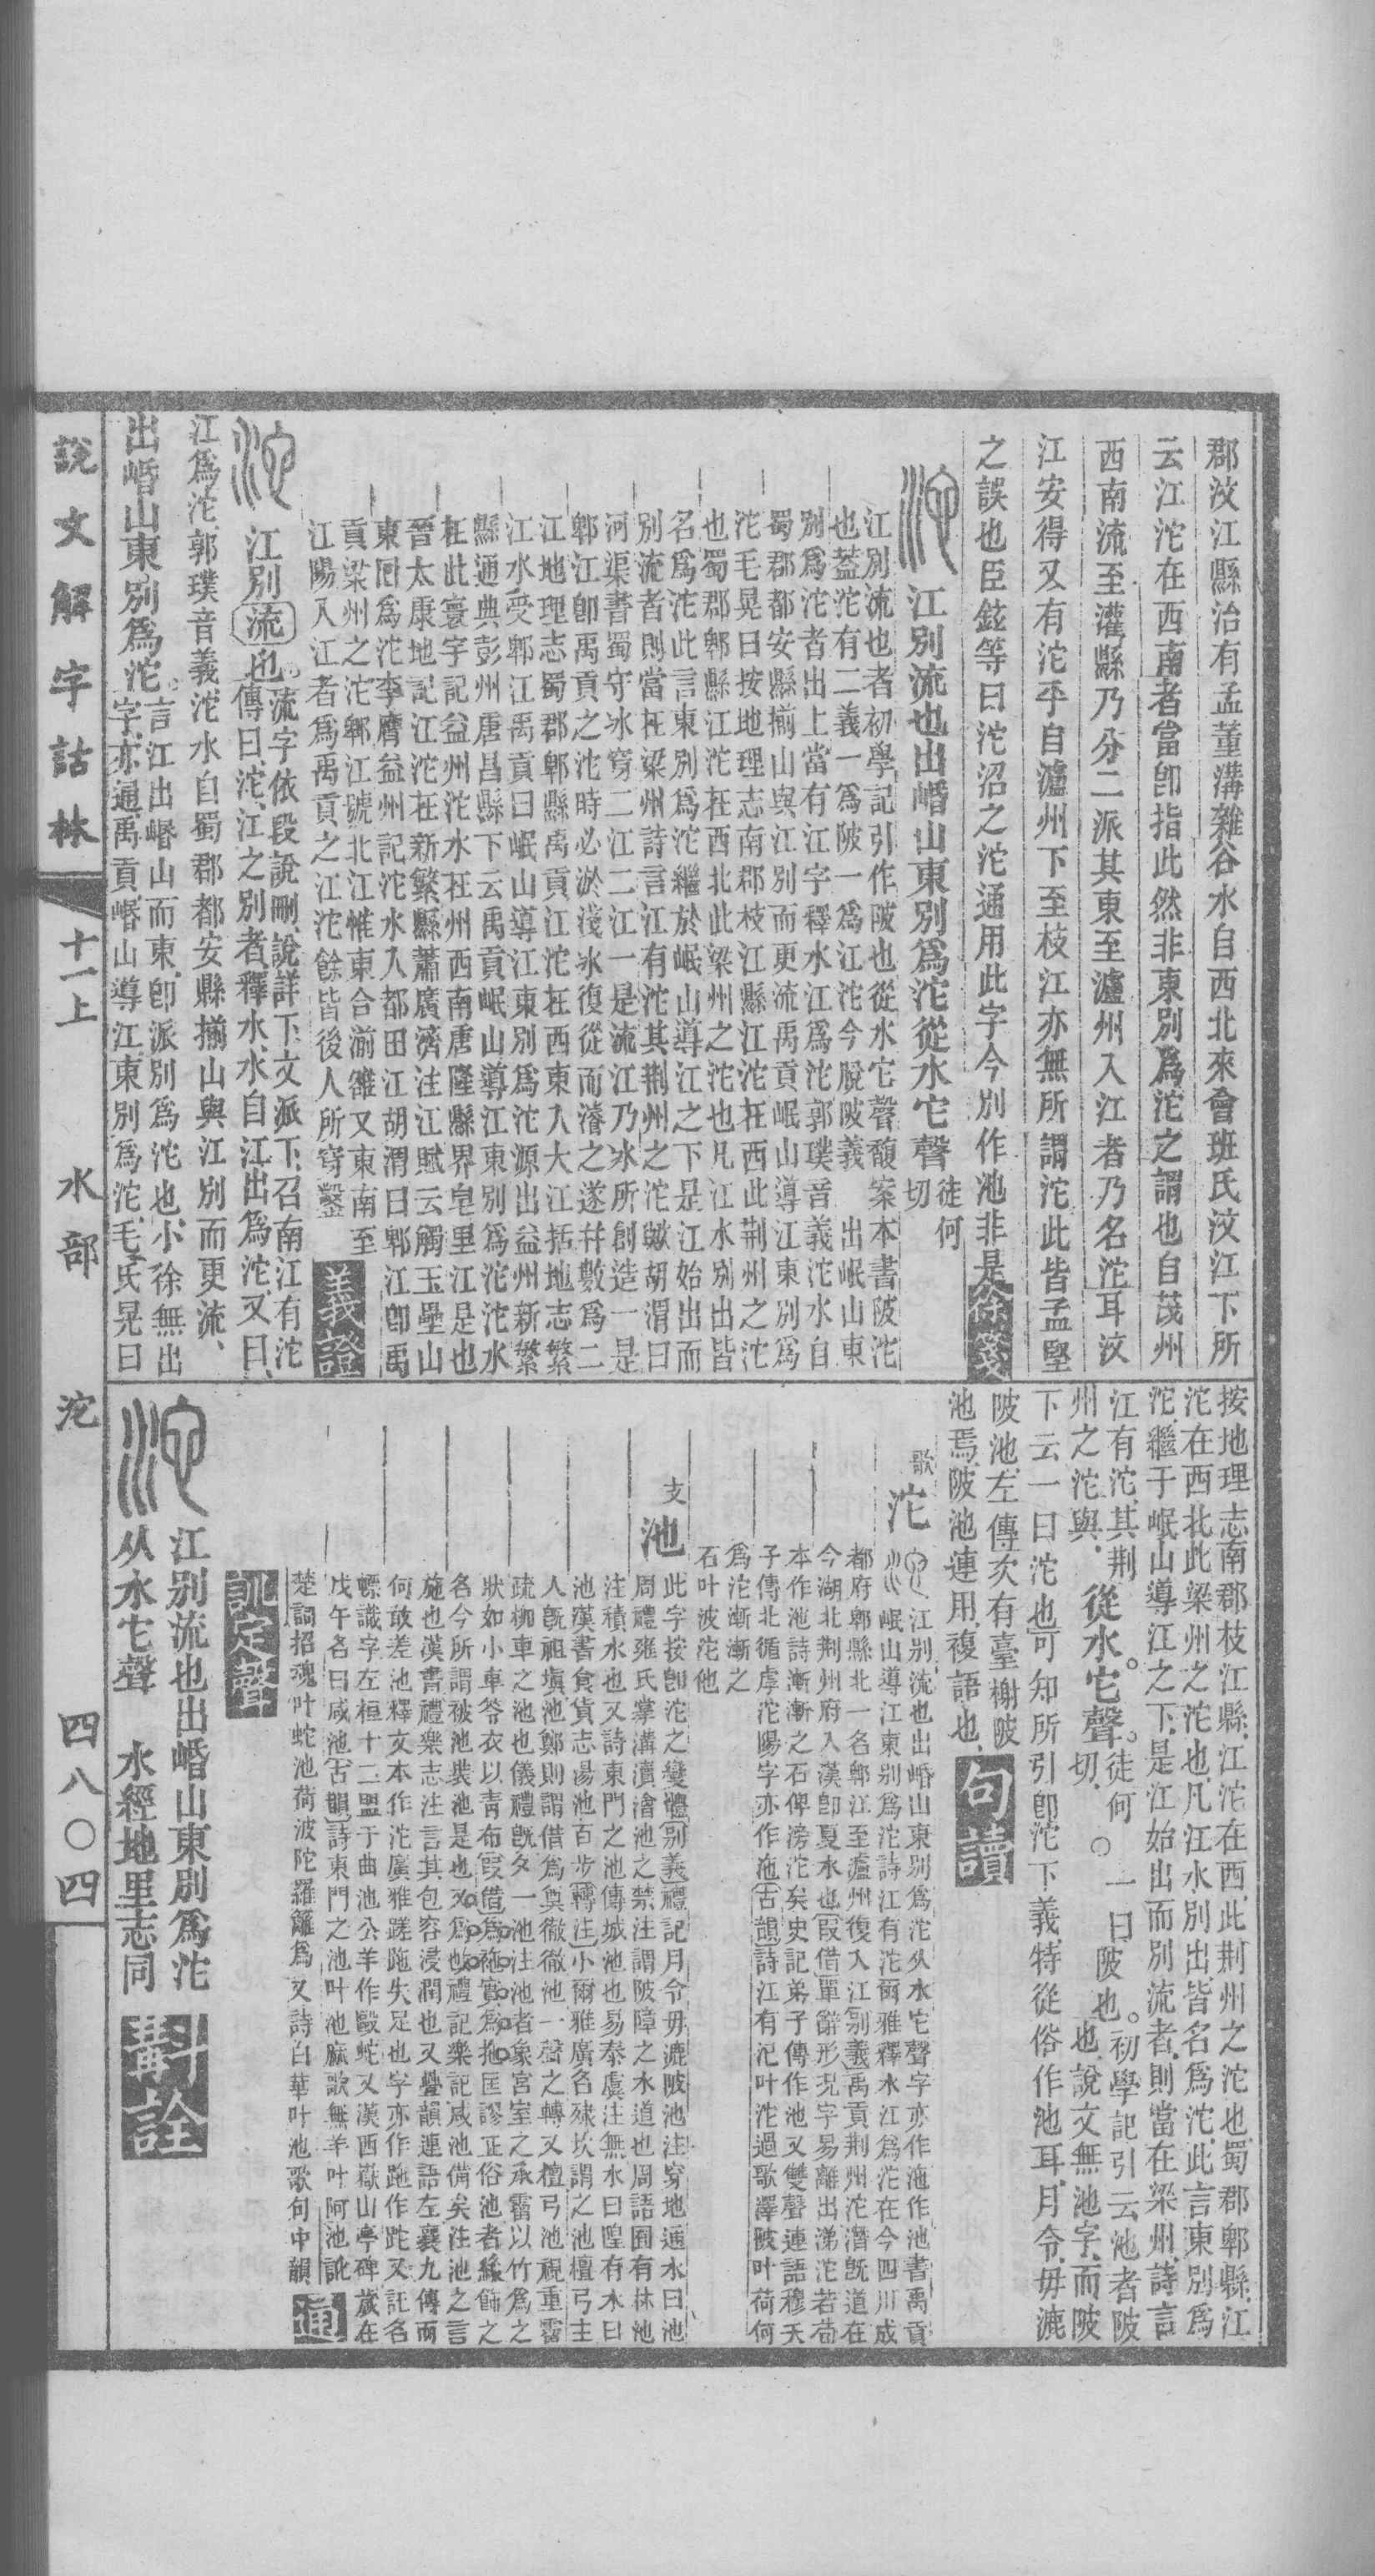 郡汶江縣治有孟董溝雜谷水自西北來會班氏汶江下所
云江沱在西南者當卽指此然非東別爲沱之謂也自茂州
西南流至灌縣乃分二派其東至瀘州入江者乃名沱耳汶
江安得又有沱乎自瀘州下至枝江亦無所謂沱此皆孟堅
之誤也臣鉉等曰沱沼之沱通用此字今別作池非是徐箋
江別流也出崏山東別爲沱從水它聲徒何切
江別流也者初學記引作陂也從水它聲馥案本書陂沱
也蓋沱有二義一爲陂一爲江沱今脫陂義 出岷山東
別爲沱者出上當有江字釋水江爲沱郭璞音義沱水自
蜀郡都安縣揃山與江別而更流禹貢岷山導江東別爲
沱毛晃曰按地理志南郡枝江縣江沱在西此荆州之沱
也蜀郡郫縣江沱在西北此梁州之沱也凡江水別出皆
名爲沱此言東別爲沱繼於岷山導江之下是江始出而
別流者則當在梁州詩言江有沱其荆州之沱歟胡渭曰
河渠書蜀守冰穿二江二江一是流江乃冰所創造一是
郫江卽禹貢之沱時必淤淺冰復從而濬之遂幷數爲二
江地理志蜀郡郫縣禹貢江沱在西東入大江括地志繁
江水受郫江禹貢曰岷山導江東別爲沱源出益州新繁
縣通典彭州唐昌縣下云禹貢岷山導江東別爲沱沱水
在此寰宇記益州沱水在州西南唐隆縣界皂里江是也
晉太康地記江沱在新繁縣蕭廣濟注江賦云觸玉壘山
東回爲沱李膺益州記沱水入都田江胡渭曰郫江卽禹
貢梁州之沱郫江號北江惟東合湔雒又東南至
江陽入江者爲禹貢之江沱餘皆後人所穿鑿 義證
江別流也。流字依段說刪說詳下文派下召南江有沱
傳曰沱江之別者釋水水自江出爲沱又曰
江爲沱郭璞音義沱水自蜀郡都安縣揃山與江別而更流
出崏山東別爲沱。言江出崏山而東卽派別爲沱也小徐無出
字亦通禹貢崏山導江東別爲沱毛氏晃曰
按地理志南郡枝江縣江沱在西此荆州之沱也蜀郡郫縣江
沱在西北此梁州之沱也凡江水別出皆名爲沱此言東別爲
沱繼于岷山導江之下是江始出而別流者則當在梁州詩言
江有沱其荆州之沱與從水它聲。徒何切○一曰陂也。初學記引云池者陂
也說文無池字而陂
下云一曰沱也可知所引卽沱下義特從俗作池耳月令毋漉
陂池左傳次有臺榭陂
池焉陂池連用複語也 句讀
歌 沱 江別流也出崏山東別爲沱从水它聲字亦作沲作池書禹貢
岷山導江東別爲沱詩江有沱爾雅釋水江爲沱在今四川成
都府郫縣北一名郫江至瀘州復入江別義禹貢荆州沱潛旣道在
今湖北荆州府入漢卽夏水也叚借單辭形況字易離出涕沱若荀
本作池詩漸漸之石俾滂沱矣史記弟子傳作池又雙聲連語穆天
子傳北循虖沱陽字亦作沲古韻詩江有汜叶沱過歌澤陂叶荷何
爲沱漸漸之
石叶波沱他
支 池 此字按卽沱之變體別義禮記月令毋漉陂池注穿地通水曰池
周禮雍氏掌溝瀆澮池之禁注謂陂障之水道也周語囿有林池
注積水也又詩東門之池傳城池也易泰虞注無水曰隍有水曰
池漢書食貨志湯池百步轉注小爾雅廣名殔坎謂之池檀弓主
人旣祖塡池鄭則謂借爲奠徹徹池一聲之轉又檀弓池視重霤
疏柳車之池也儀禮旣夕一池注池者象宮室之承霤以竹爲之
狀如小車笭衣以靑布叚借爲袘實爲拖匡謬正俗池者緣飾之
名今所謂被池裝池是也又爲施禮記樂記咸池備矣注池之言
施也漢書禮樂志注言其包容浸潤也又疊韻連語左襄九傳而
何敢差池釋文本作沱廣雅蹉跎失足也字亦作跎作跎又託名
幖識字左桓十二盟于曲池公羊作毆蛇又漢西嶽山亭碑歲在
戊午名曰咸池古韻詩東門之池叶池麻歌無羊叶阿池訛
楚詞招魂叶蛇池荷波陀羅籬爲又詩白華叶池歌句中韻 通
訓定聲
江別流也出崏山東別爲沱
从水它聲 水經地里志同 斠詮
說文解字詁林 十一上 水部 沱 四八〇四